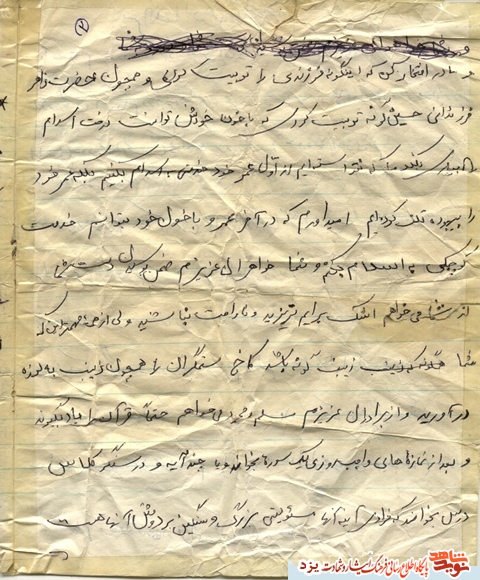 ۲
و مادر افتخار کن که اینگونه فرزندی را تربیت کردی و همچون حضرت زهرا
فرزندانی حسین گونه تربیت کردی که با خون خودش توانست درخت اسلام
را آبیاری بکند ما که نتوانسته ایم از اول عمر خود خدمتی به اسلام بکنیم بلکه عمر خود
را بیهوده تلف کرده ایم امیدوارم که در آخر عمر و با خون خود بتوانم خدمت
کوچکی به اسلام بکنم و شما خواهران عزیزم ضمن
از شما می خواهم اشک برایم نریزید و ناراحت نباشید ولی از همه مهمتر این که
شما هرگونه که زینب گونه باشد کاخ ستمگران را همچون زینب به لرزه
در آورید و از برادران عزیزم می خواهم حتماً قرآن را یاد بگیرند
و بعد از نمازهای واجب روزی یک سوره بخوانند و یا چند آیه و در سنگر کلاس
درس بخوانند که فردای آینه آنها مسئولیتی بزرگ و سنگین بر دوش آنها هست
نوید شاهد
پایگاه اطلاع رسانی فرهنگ ایثار و شهادت یزد